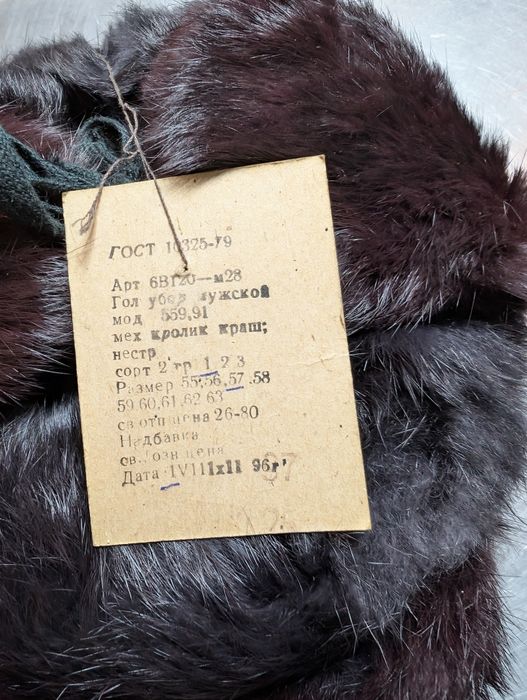 ГОСТ 10325-79
Арт 6В120—м28
Гол убор мужской
мод 559,91
мех кролик краш;
нестр
сорт 2 гр 1 2 3
Размер 55,56,57,58
59 60,61,62 63
св отп цена 26-80
Надбавка
св. озн цена
Дата 1V111х11 96г
97